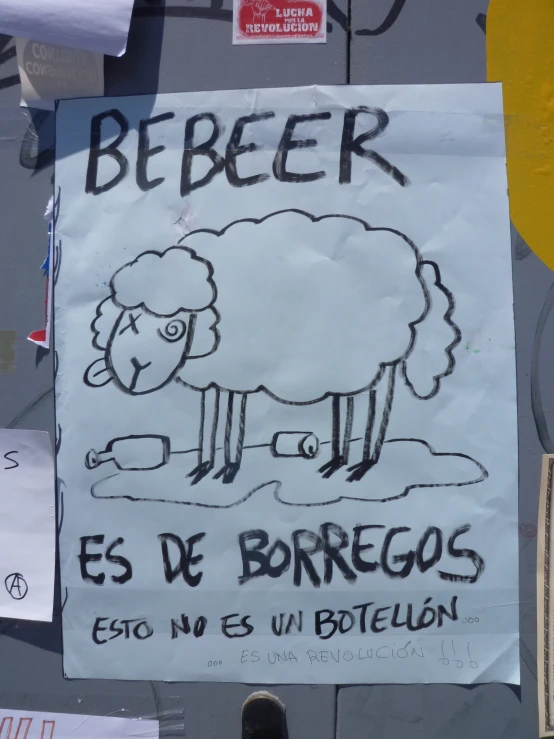 LUCHA
POR LA
REVOLUCION
BEBEER
ES DE BORREGOS
ESTO NO ES UN BOTELLÓN...
... ES UNA REVOLUCIÓN !!!
S
A